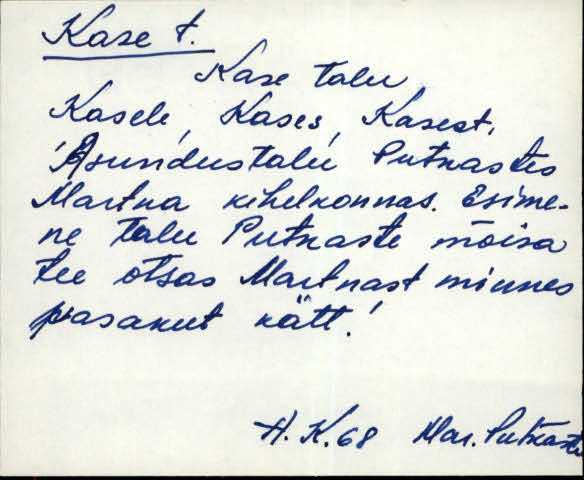 Kase t.
Kase talu
Kasele, Kases, Kasest.
Asundustalu Putkastes
Martna kihelkonnas. Esime-
ne talu Putkaste mõisa
tee otsas Martnast minnes
pasakut kätt!
H. K. 68 Mar. Putkaste